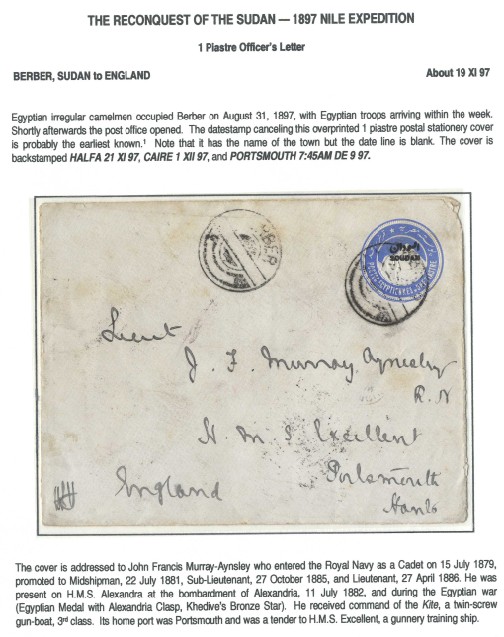 THE RECONQUEST OF THE SUDAN — 1897 NILE EXPEDITION
1 Piastre Officer's Letter
BERBER, SUDAN to ENGLAND
About 19 XI 97
Egyptian irregular camelmen occupied Berber on August 31, 1897, with Egyptian troops arriving within the week.
Shortly afterwards the post office opened. The datestamp canceling this overprinted 1 piastre postal stationery cover
is probably the earliest known.¹ Note that it has the name of the town but the date line is blank. The cover is
backstamped HALFA 21 XI 97, CAIRE 1 XII 97, and PORTSMOUTH 7:45AM DE 9 97.
SOUDAN
Lieut
J. F. Murray Aynesley
R.N
H. M. S Excellent
Portsmouth
England
Hants
The cover is addressed to John Francis Murray-Aynsley who entered the Royal Navy as a Cadet on 15 July 1879,
promoted to Midshipman, 22 July 1881, Sub-Lieutenant, 27 October 1885, and Lieutenant, 27 April 1886. He was
present on H.M.S. Alexandra at the bombardment of Alexandria, 11 July 1882, and during the Egyptian war
(Egyptian Medal with Alexandria Clasp, Khedive's Bronze Star). He received command of the Kite, a twin-screw
gun-boat, 3rd class. Its home port was Portsmouth and was a tender to H.M.S. Excellent, a gunnery training ship.